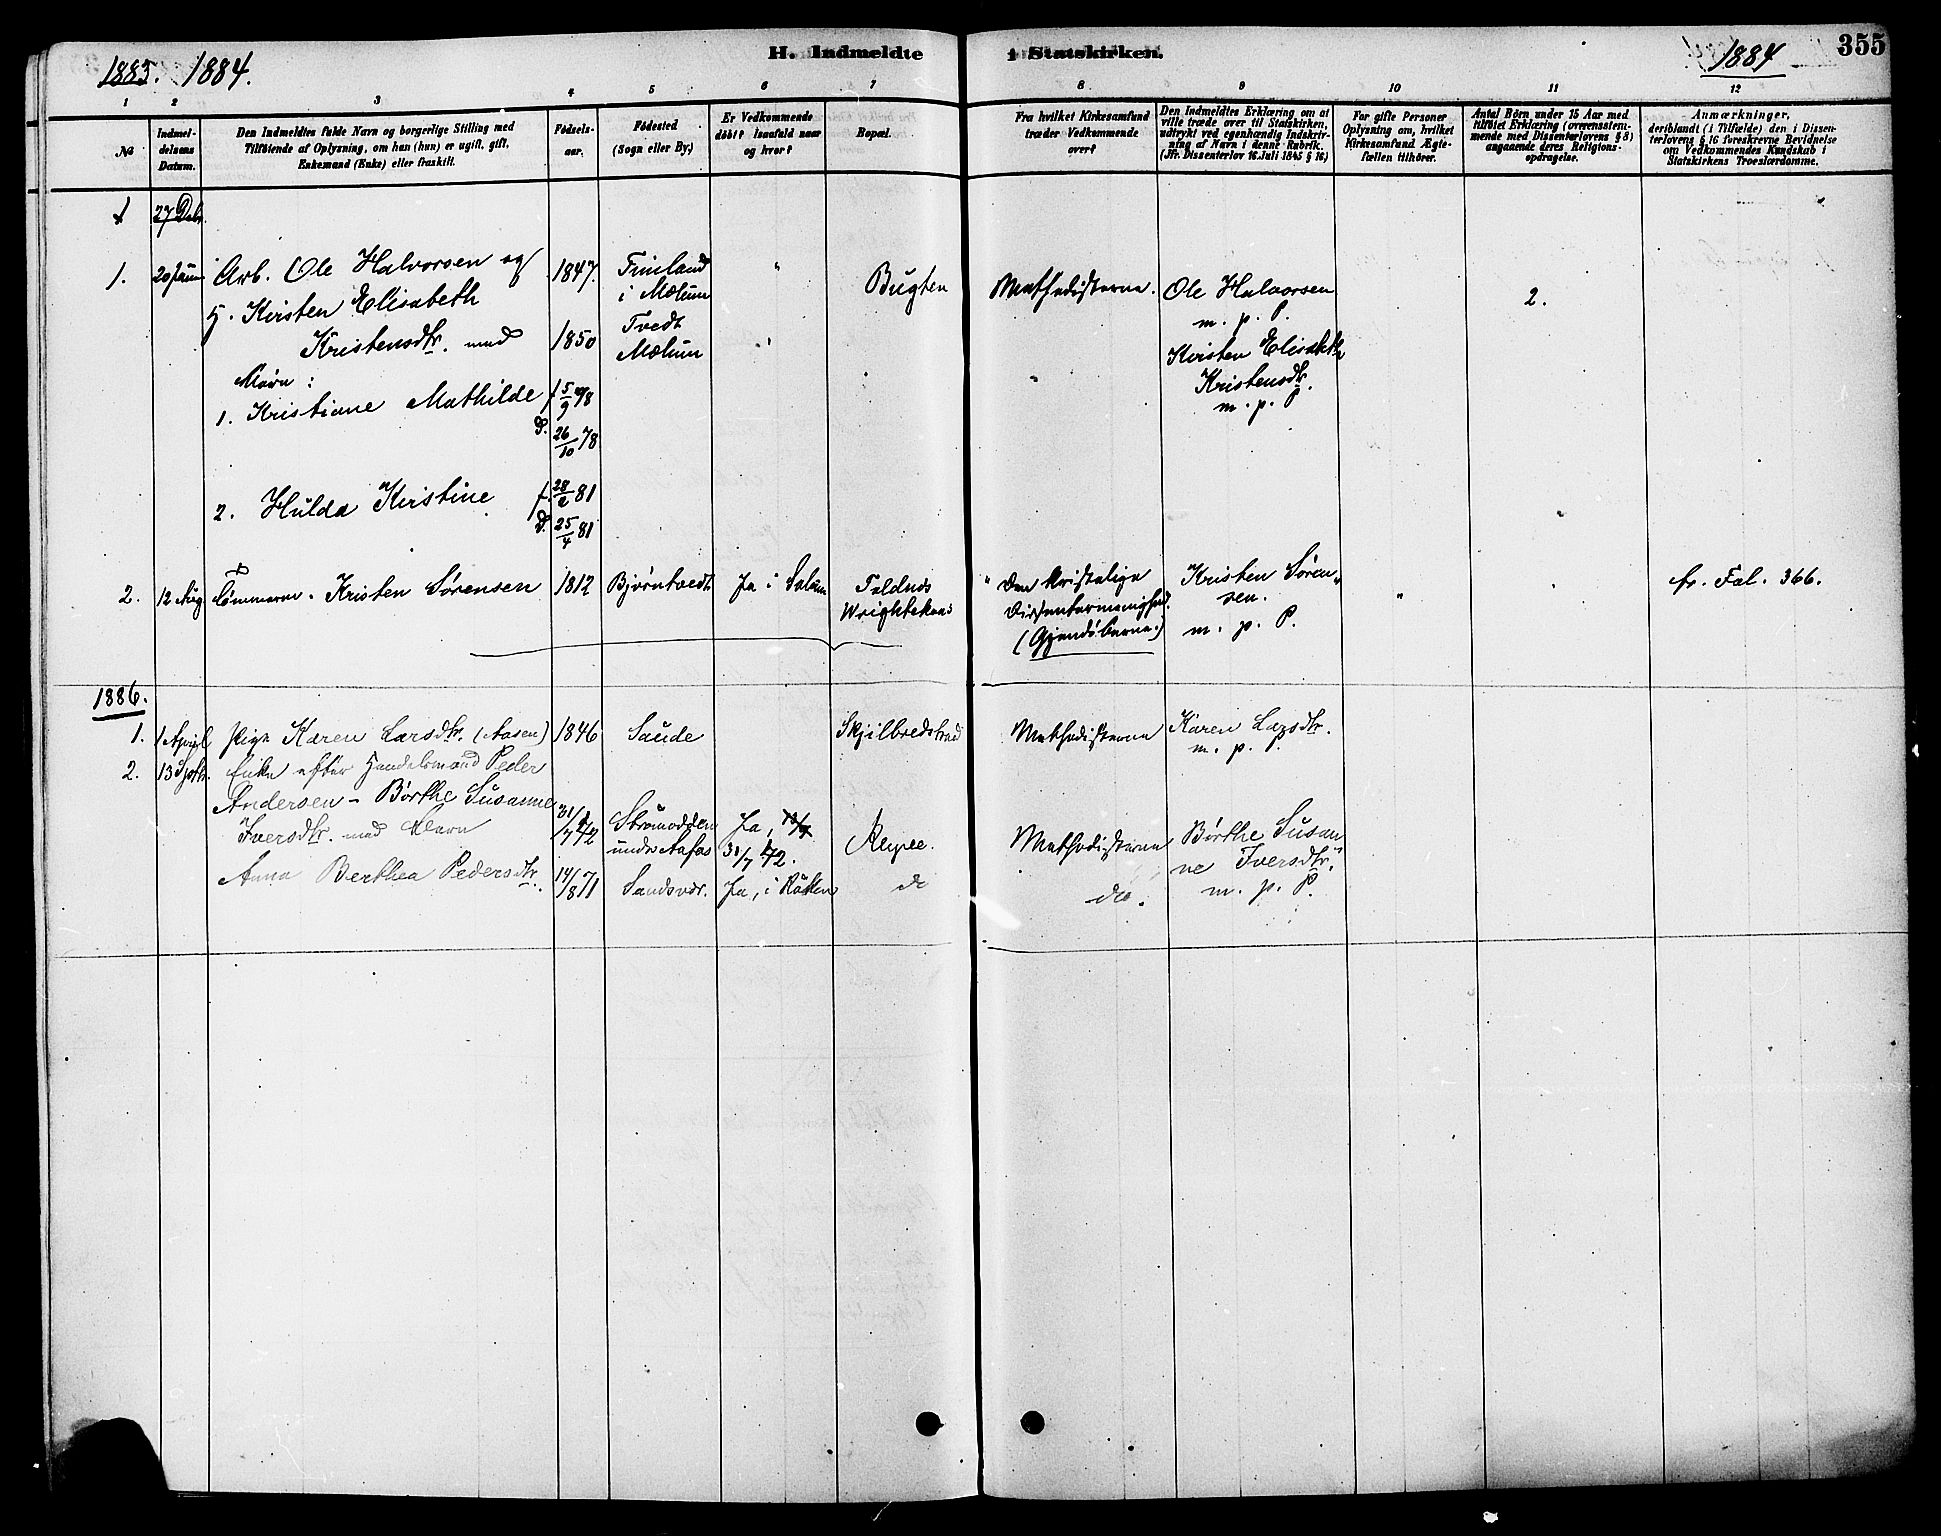 1883. 1884.
H. Indmeldte i Statskirken.
1884
355
1 2 3 4 5 6 7 8 9 10 11 12
№
Indmel-
delsens
Datum.
Den Indmeldtes fulde Navn og borgerlige Stilling med
Tilføiende af Oplysning, om han (hun) er ugift, gift,
Enkemand (Enke) eller fraskilt.
Fødsels-
aar.
Fødested
(Sogn eller By.)
Er Vedkommende
døbt? Isaafald naar
og hvor?
Bopæl.
Fra hvilket Kirkesamfund
træder Vedkommende
over?
Den Indmeldtes Erklæring, om at
ville træde over til Statskirken,
udtrykt ved egenhændig Indskriv-
ning af Navn i denne Rubrik.
(Jfr. Dissenterlov 16 Juli 1845 § 16)
For gifte Personer
Oplysning om, hvilket
Kirkesamfund Ægte-
fællen tilhører.
Antal Børn under 15 Aar med
tilføiet Erklæring (overensstem-
mende med Dissenterlovens § 8)
angaaende deres Religions-
opdragelse.
Anmærkninger,
deriblandt (i Tilfælde) den i Dissen-
terlovens § 16 foreskrevne Bevidnelse
om Vedkommendes Kundskab i
Statskirkens Troeslærdomme.
1 27
1. 20 Arb. Ole Halvorsen og 1847. " Bugten Methodisterne. Ole Halvorsen 2.
i Mælum m. p. P.
H. Kirsten Elisabeth Tvedt
Kristensdtr. med 1850 Mælum " Kirsten Elisabeth
Kristensdtr.
m. p. P
Børn:
1. Kristiane Mathilde f 5/9 78
D. 26/10 78
2. Hulda Kristine f. 28/2 81
D. 25/4 81
2. 12 Aug Tømmerm. Kristen Sørensen 1812 Bjørntvedt Ja i Solum Den kristelige Kristen Søren- " fr. Fol. 366.
Dissentermenighed. sen.
(Gjendøberne.) m. p. P.
1886.
1. 1 April Pige Karen Larsdtr. (Aasen) 1846 Saude Skjilbredstrand Methodisterne Karen Larsdtr.
m. p. P.
2. 13 Septb. Enke efter Handelsmand Peder
Andersen - Børthe Susanne
Iversdtr. med Barn 31/7 42 Strømodden Ja, 31/7 42. Methodisterne Børthe Susan-
ne Iversdtr.
Anna Berthea Pedersdtr. 14/8 71 Sandsvær. Ja, i do do. m. p. P.